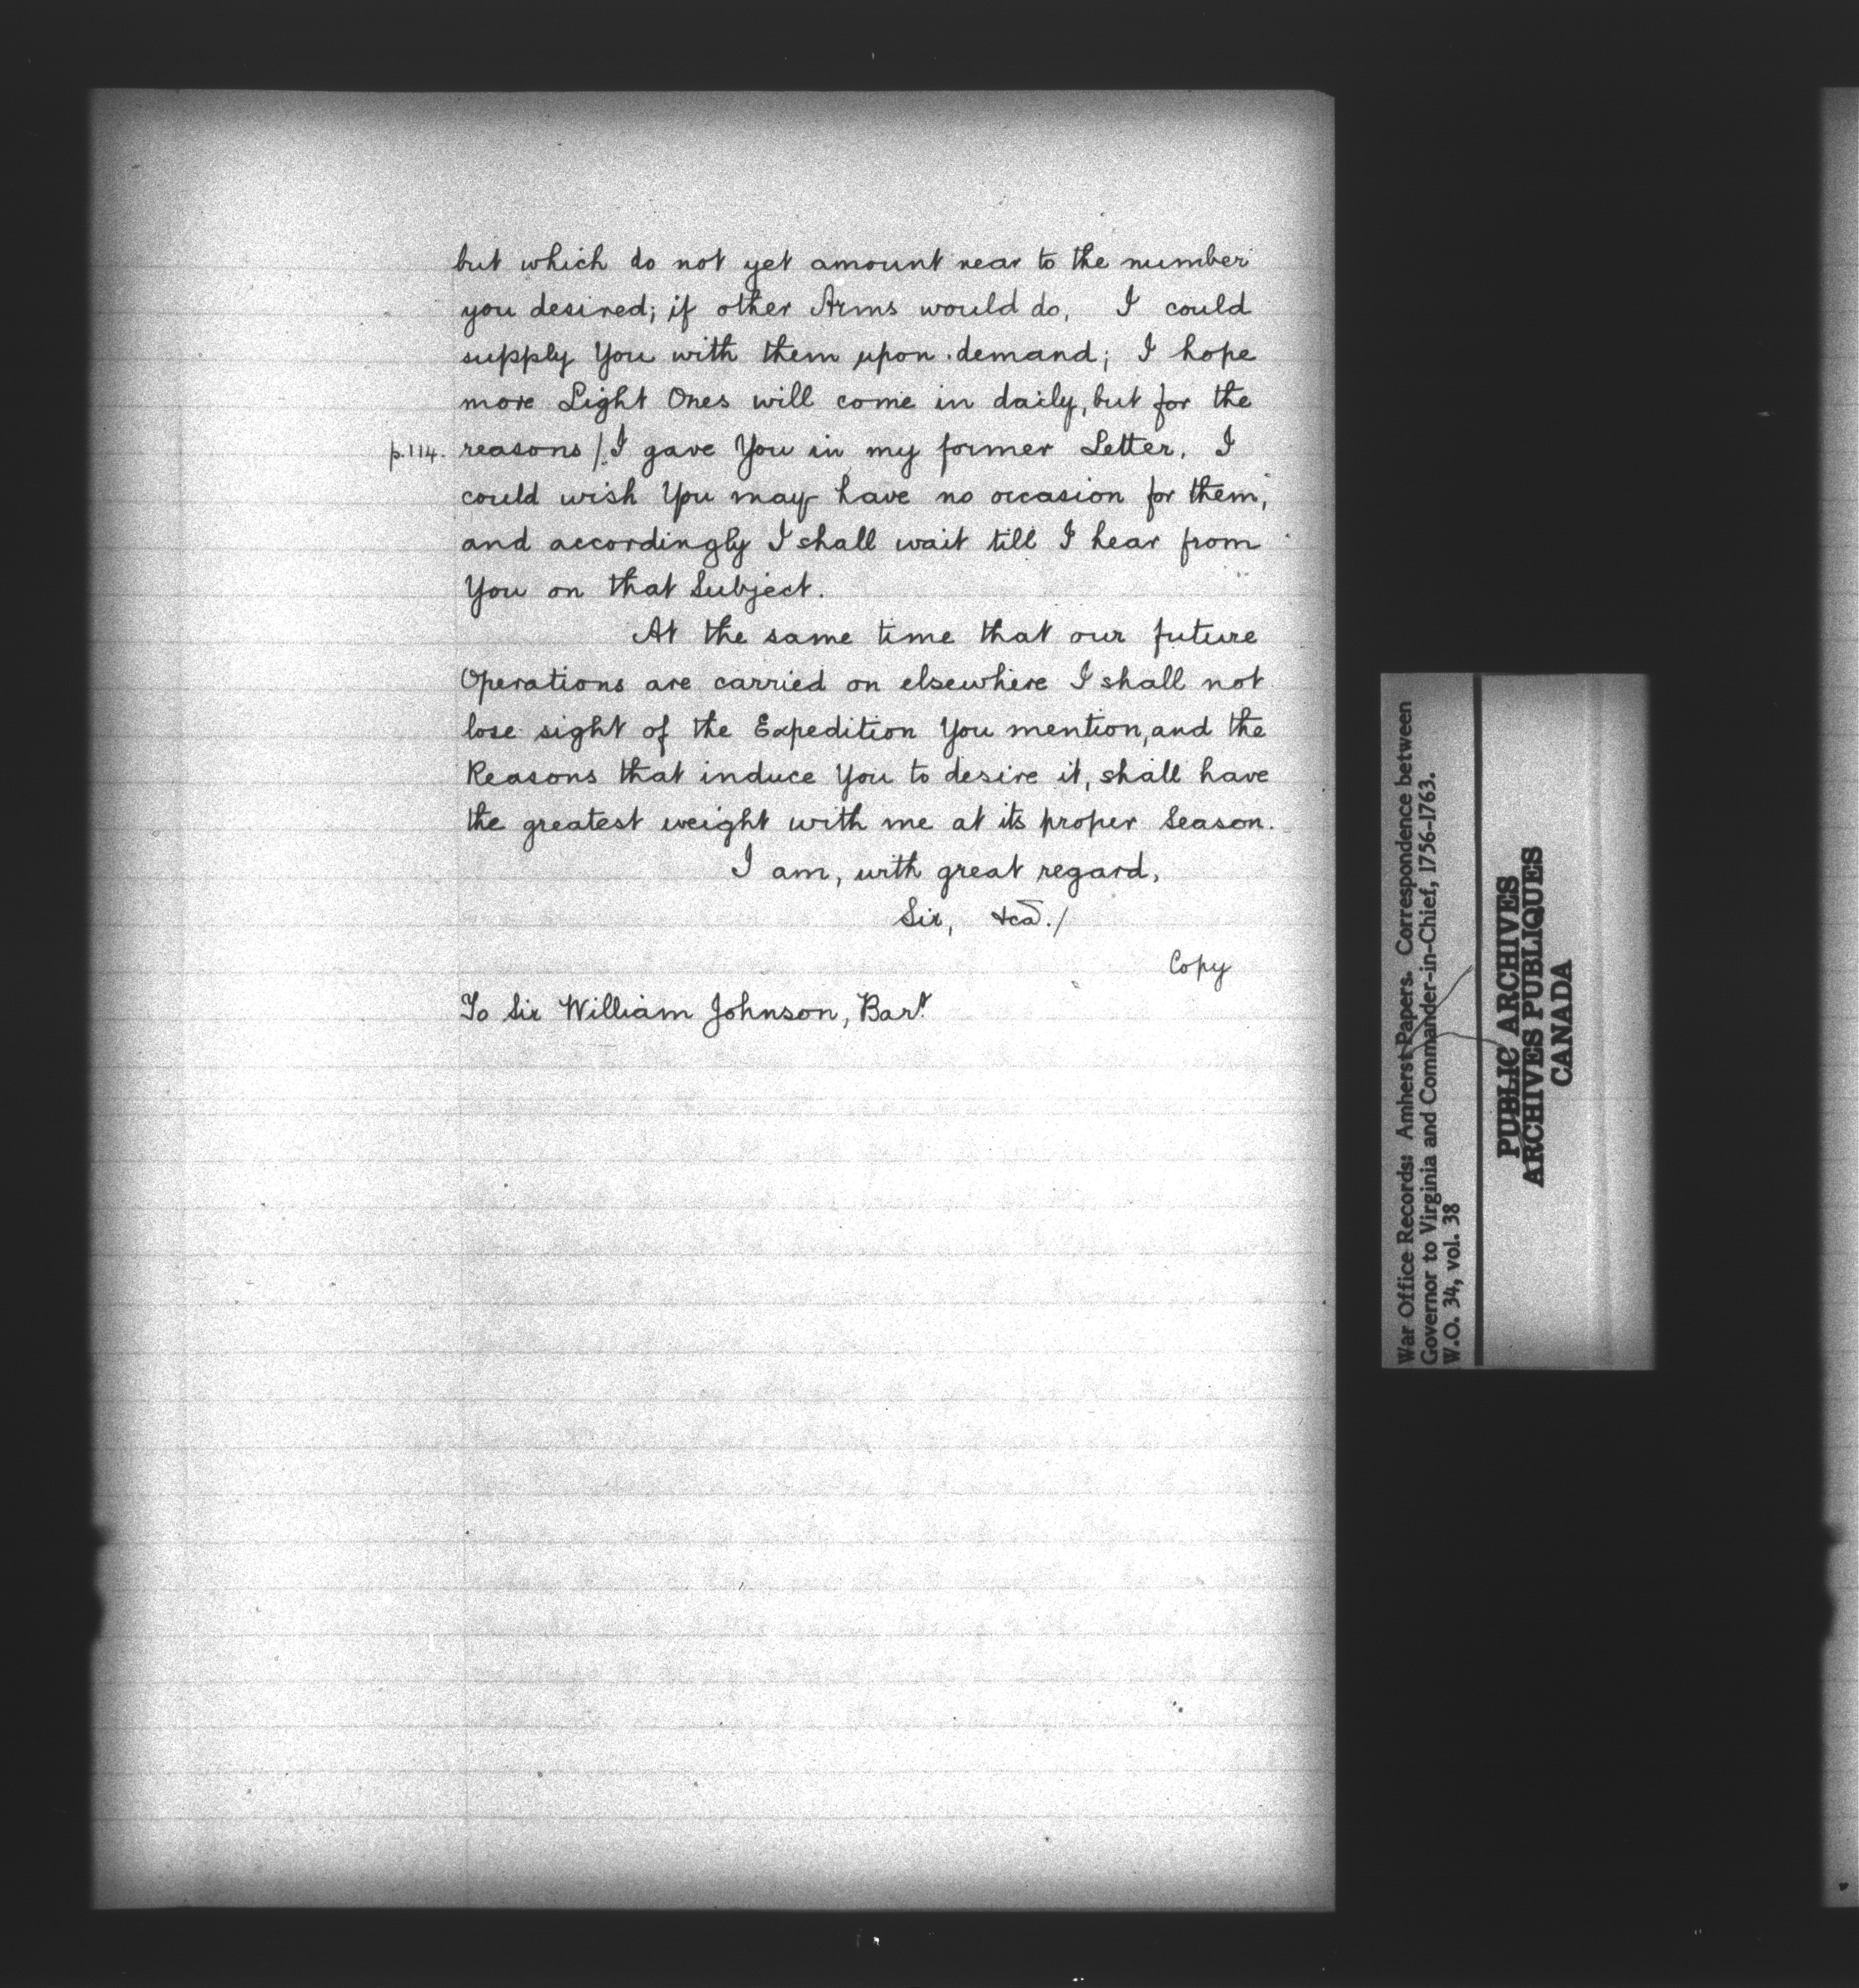 but which do not yet amount near to the number
you desired; if other Arms would do, I could
supply You with them upon demand; I hope
more Light Ones will come in daily, but for the
p.114. reasons /I gave You in my former Letter, I
could wish You may have no occasion for them;
and accordingly I shall wait till I hear from
You on that Subject.
At the same time that our future
Operations are carried on elsewhere I shall not
lose sight of the Expedition You mention, and the
Reasons that induce You to desire it, shall have
the greatest weight with me at its proper Season.
I am, with great regard,
Sir, &ca./
Copy
To Sir William Johnson, Bart.
War Office Records: Amherst Papers. Correspondence between
Governor to Virginia and Commander-in-Chief, 1756-1763.
W.O. 34, vol. 38
PUBLIC ARCHIVES
ARCHIVES PUBLIQUES
CANADA